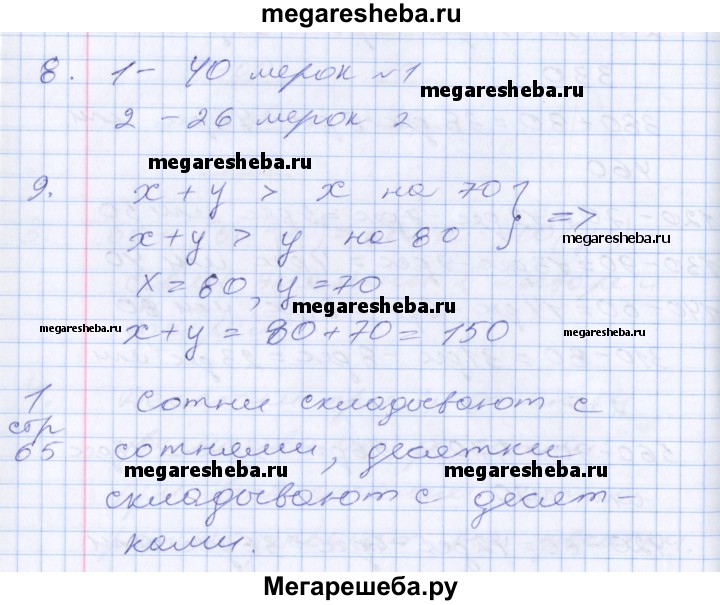 megaresheba.ru
8. 1 - 40 мерок №1
megaresheba.ru
2 - 26 мерок 2
megaresheba.ru
9. x + y > x на 70 } =>
megaresheba.ru
x + y > y на 80
x = 80, y = 70
megaresheba.ru
megaresheba.ru x + y = 80 + 70 = 150 megaresheba.ru
1 Сотни складывают с
стр
65 сотнями, десятки
megaresheba.ru megaresheba.ru
складывают с десят-
ками.
Мегарешеба.ру